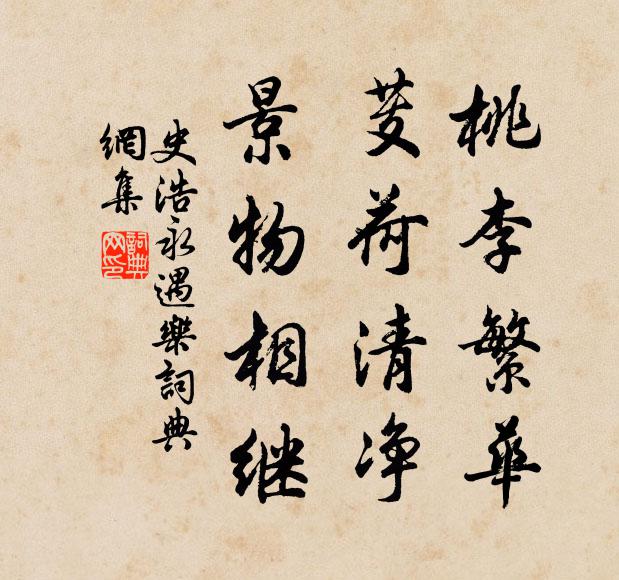 桃李繁華
芰荷清净
景物相继
史浩永遇樂詞典
網集
詞典
网印